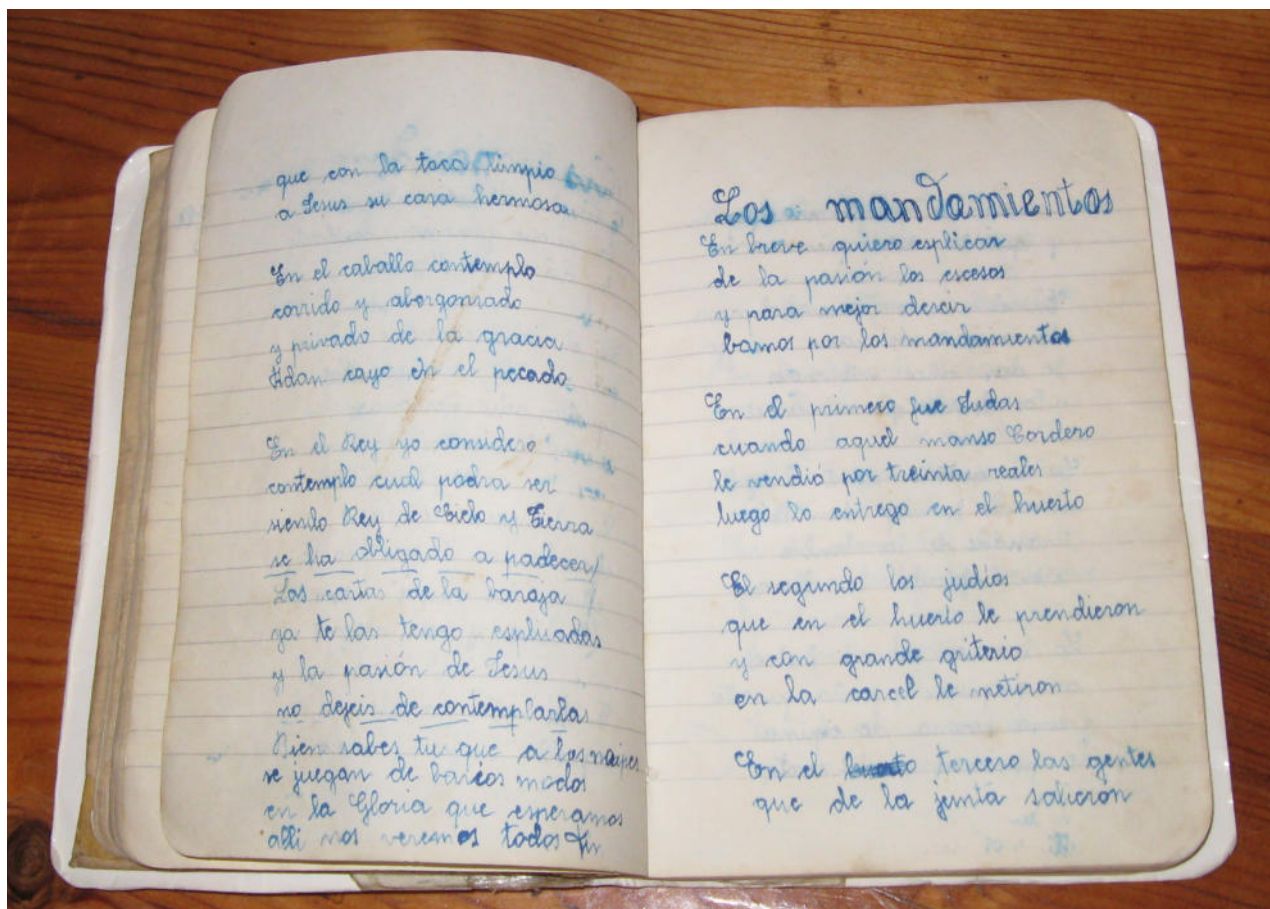 que con la toca limpio
a Jesus su cara hermosa
En el caballo contemplo
corrido y abergonsado
y privado de la gracia
Adan cayo en el pecado
En el Rey yo considero
contemplo cual podra ser
siendo Rey de Cielo y Tierra
se ha obligado a padecer/
Las cartas de la baraja
ya te las tengo esplicadas
y la pasión de Jesus
no dejeis de contemplarlas
Bien sabes tu que a los naipes
se juegan de barios modos
en la Gloria que esperamos
alli nos veremos todos Fin
Los mandamientos
En breve quiero esplicar
de la pasión los escesos
y para mejor decir
bamos por los mandamientos
En el primero fue Judas
cuando aquel manso Cordero
le vendió por treinta reales
luego lo entrego en el huerto
El segundo los judíos
que en el huerto le prendieron
y con grande griterio
en la carcel le metiron
En el tercero las gentes
que de la junta salieron